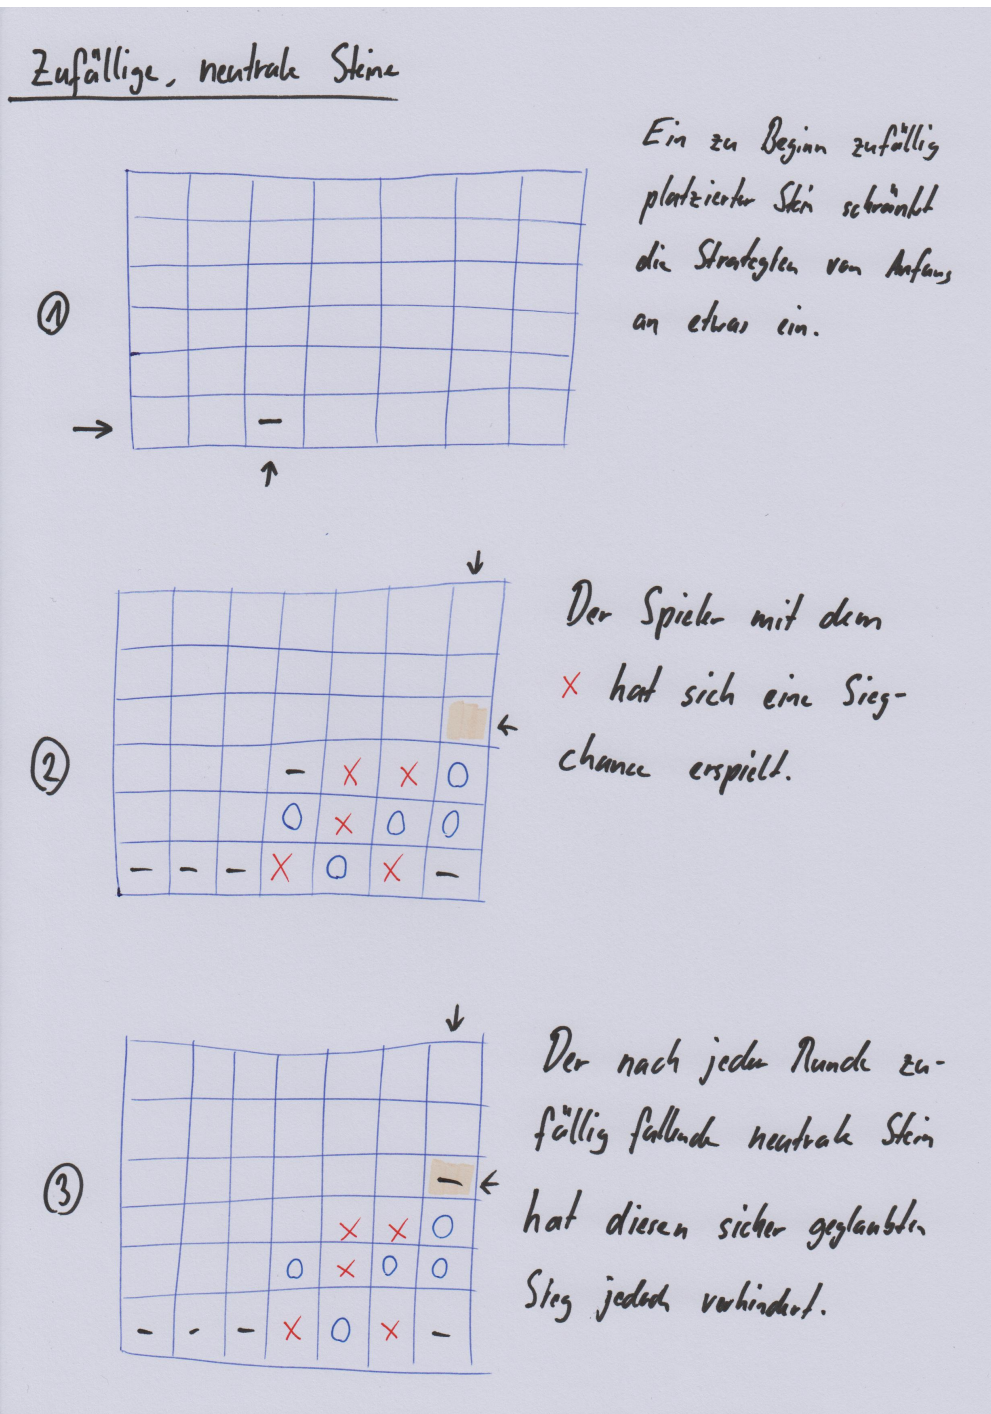 Zufällige, neutrale Steine
Ein zu Beginn zufällig
platzierter Stein schränkt
die Strategien von Anfang
an etwas ein.
1
→
-
↑
↓
Der Spieler mit dem
X hat sich eine Sieg-
chance erspielt.
←
2
- X X O
O X O O
- - - X O X -
↓
Der nach jeder Runde zu-
fällig fallende neutrale Stein
hat diesen sicher geglaubten
Sieg jedoch verhindert.
3
- ←
X X O
O X O O
- - - X O X -